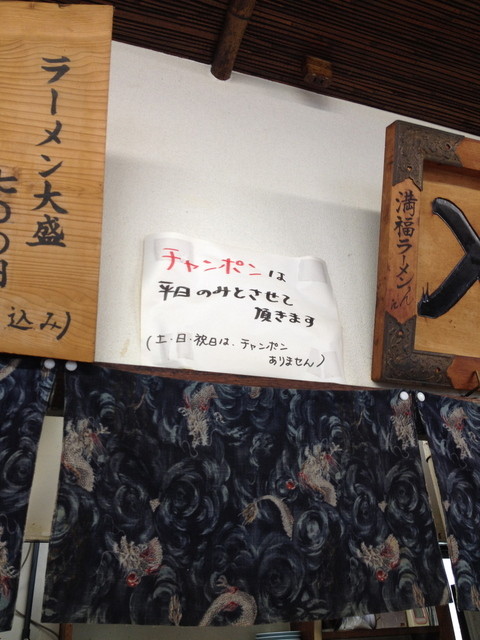 ラーメン大盛
七〇〇円
込み)
チャンポンは
平日のみとさせて
頂きます
(土・日・祝日は、チャンポン
ありません)
満福ラーメン